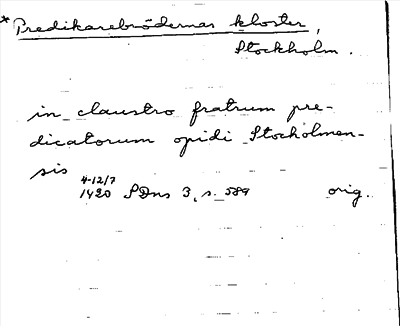 *Predikarebrödernas kloster,
Stockholm.
in claustro fratrum pre-
dicatorum opidi Stocholmen-
sis
4-12/7
1420 SDns 3, s. 589 orig.